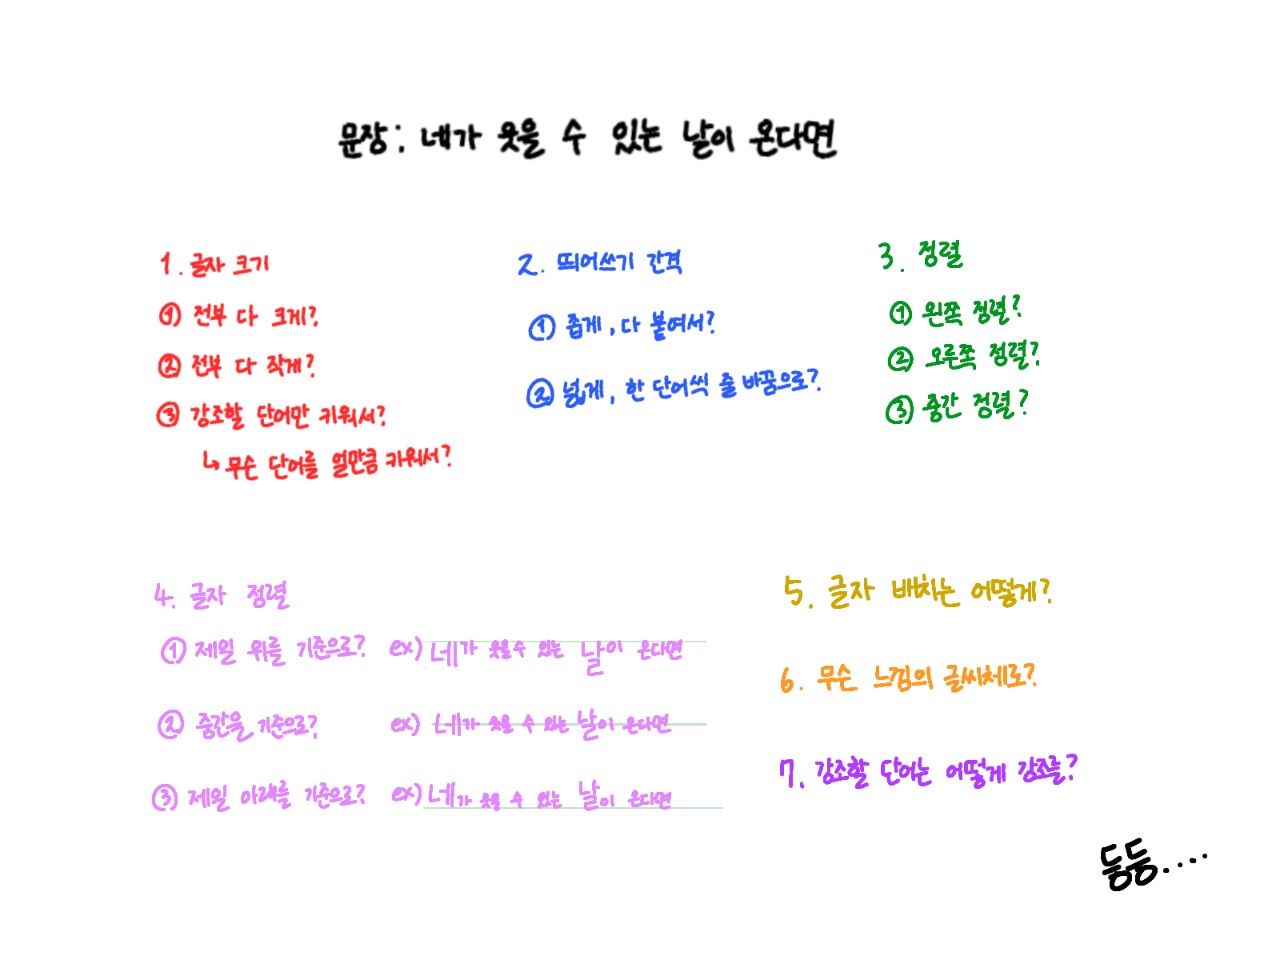 문장: 네가 웃을 수 있는 날이 온다면
1. 글자 크기
① 전부 다 크게?
② 전부 다 작게?
③ 강조할 단어만 키워서?
↳ 무슨 단어를 얼만큼 키워서?
2. 띄어쓰기 간격
① 좁게, 다 붙여서?
② 넓게, 한 단어씩 줄 바꿈으로?
3. 정렬
① 왼쪽 정렬?
② 오른쪽 정렬?
③ 중간 정렬?
4. 글자 정렬
① 제일 위를 기준으로? ex) 네가 웃을 수 있는 날이 온다면
② 중간을 기준으로? ex) 네가 웃을 수 있는 날이 온다면
③ 제일 아래를 기준으로? ex) 네가 웃을 수 있는 날이 온다면
5. 글자 배치는 어떻게?
6. 무슨 느낌의 글씨체로?
7. 강조할 단어는 어떻게 강조를?
등등....